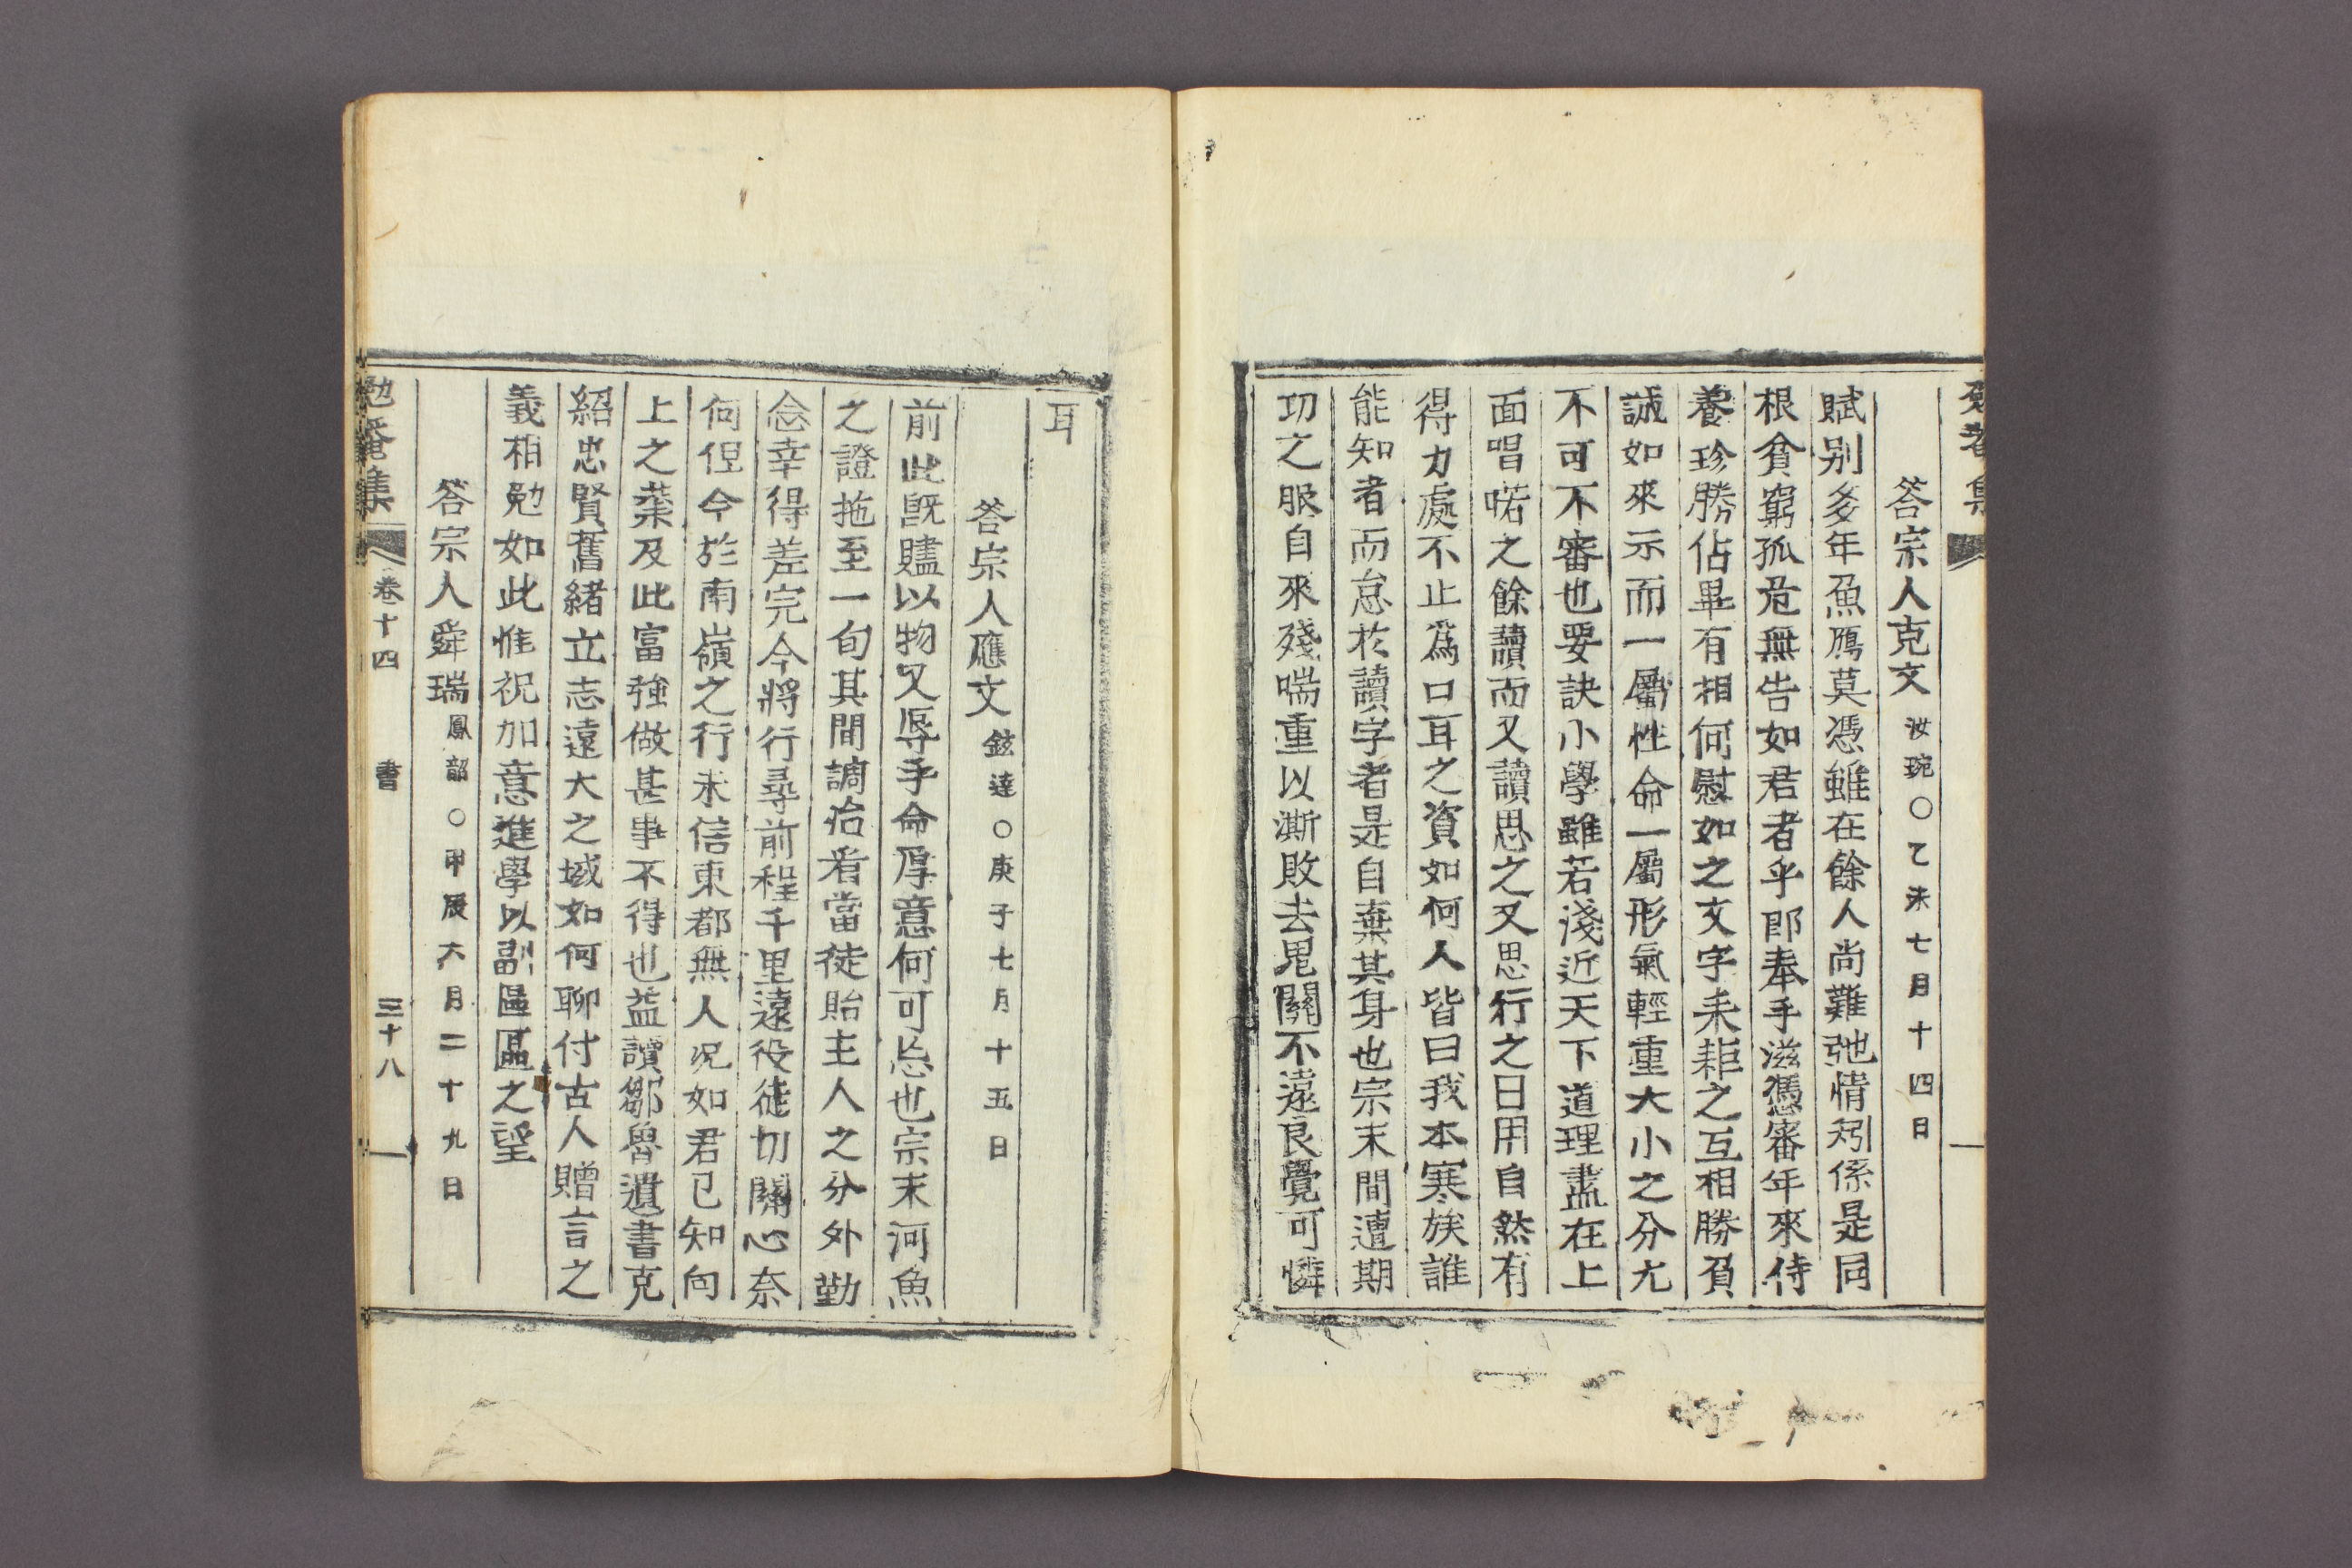 勉菴集
答宗人克文 汝琬○乙未七月十四日
賦别多年魚鴈莫憑雖在餘人尚難弛情矧係是同
根貧窮孤危無告如君者乎卽奉手滋憑審年來侍
養珍勝佔畢有相何慰如之文字耒耟之互相勝負
誠如來示而一屬性命一屬形氣輕重大小之分尤
不可不審也要訣小學雖若淺近天下道理盡在上
面唱喏之餘讀而又讀思之又思行之日用自然有
得力處不止爲口耳之資如何人皆曰我本寒族誰
能知者而怠於讀字者是自棄其身也宗末間遭期
功之服自來殘喘重以澌敗去鬼關不遠良覺可憐
耳
答宗人應文 鉉達○庚子七月十五日
前此旣贐以物又辱手命厚意何可忘也宗末河魚
之證拖至一旬其間調治看當徒貽主人之分外勤
念幸得差完今將行尋前程千里遠役徒切關心奈
何但今於南嶺之行未信東都無人况如君已知向
上之葉及此富強做甚事不得也益讀鄒魯遺書克
紹忠賢舊緖立志遠大之域如何聊付古人贈言之
義相勉如此惟祝加意進學以副區區之望
答宗人舜瑞 鳳韶○甲辰六月二十九日
勉菴集 卷十四 書 三十八